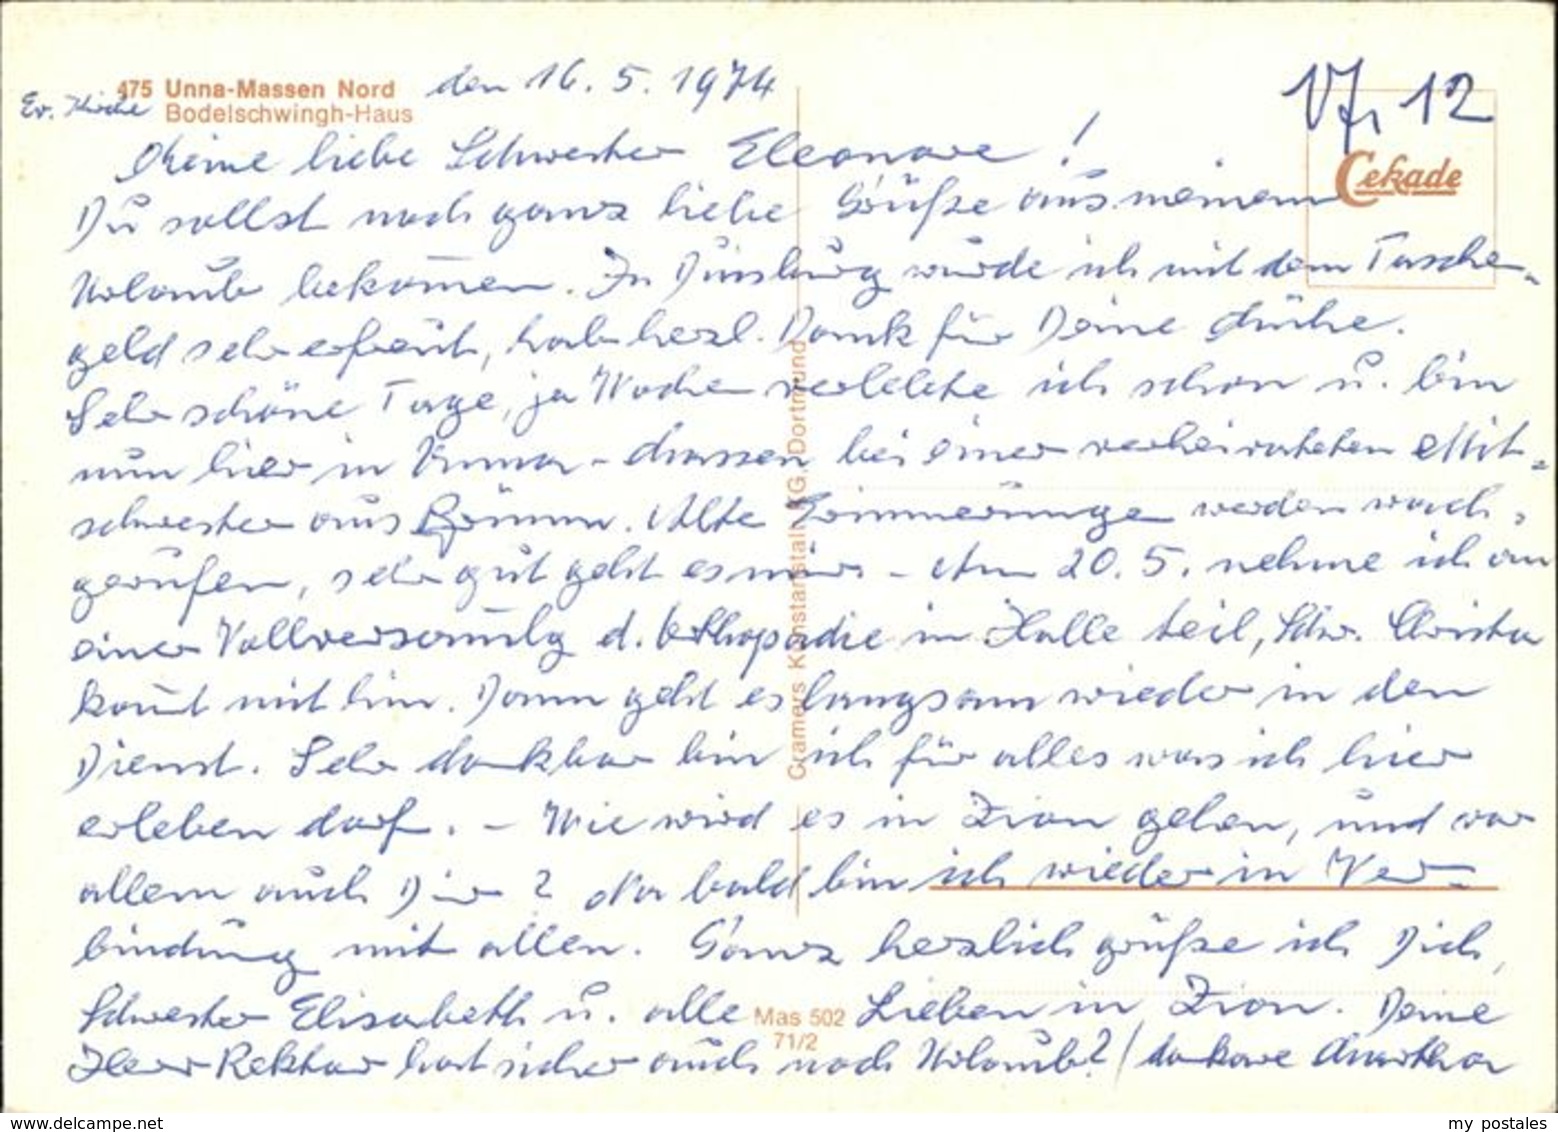 475 Unna-Massen Nord den 16. 5. 1974
Ev. Kirche Bodelschwingh-Haus
17, 12
Cekade
Meine liebe Schwester Eleonore!
Du sollst noch ganz liebe Grüße aus meinem
Urlaub bekom̄en. In Duisburg wurde ich mit dem Taschen-
geld sehr erfreut, hab herzl. Dank für Deine Mühe.
Sehr schöne Tage, ja Wochen verlebte ich schon u. bin
nun hier in Unna-Massen bei einer verheirateten Mit-
schwester aus Brünn. Alte Erinnerungen werden wach-
gerufen, sehr gut geht es mir - Am 20. 5. nehme ich an
einer Vollversam̄lg d. Orthopädie in Halle teil, Schw. Christa
kom̄t mit hin. Dann geht es langsam wieder in den
Dienst. Sehr dankbar bin ich für alles was ich hier
erleben darf. - Wie wird es in Zion gehen, und vor
allem auch Dir? Na bald bin ich wieder in Ver-
bindung mit allen. Ganz herzlich grüße ich Dich,
Schwester Elisabeth u. alle Lieben in Zion. Deine
Herr Rektor hat sicher auch noch Urlaub? / dankbare Martha
Cramers Kunstanstalt KG, Dortmund
Mas 502
71/2
www.delcampe.net
my postales